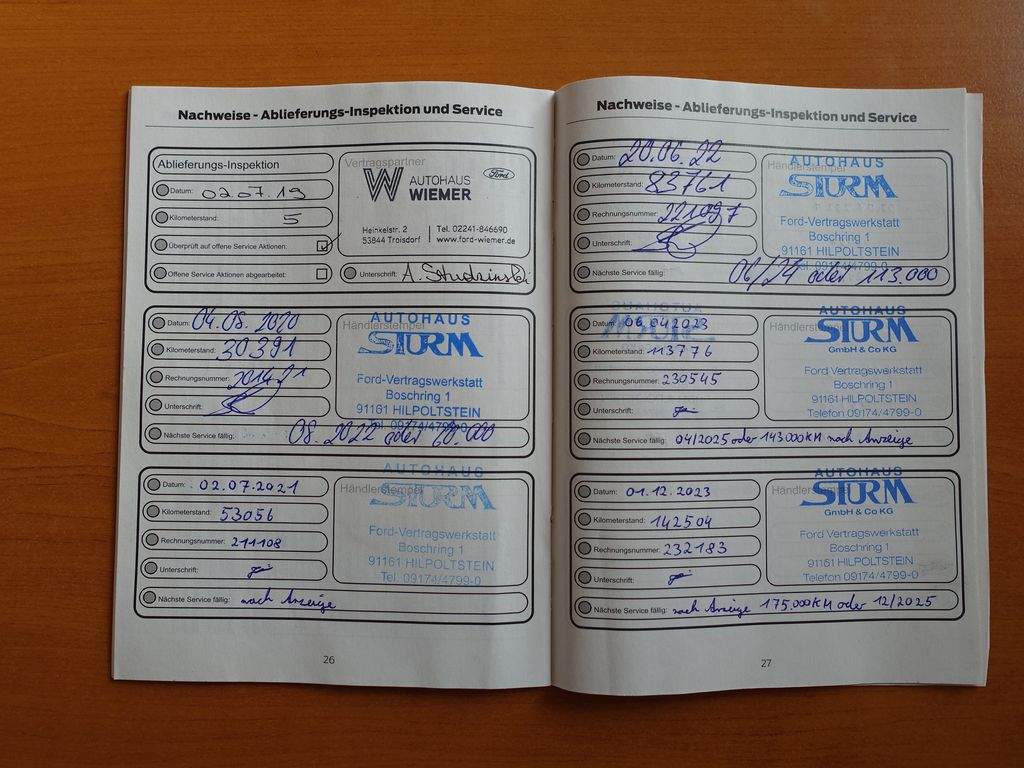 Nachweise - Ablieferungs-Inspektion und Service
Ablieferungs-Inspektion
Datum: 02.07.19
Kilometerstand: 5
Überprüft auf offene Service Aktionen:
Offene Service Aktionen abgearbeitet:
Vertragspartner
W AUTOHAUS WIEMER
Ford
Heinkelstr. 2
53844 Troisdorf
Tel. 02241-846690
www.ford-wiemer.de
Unterschrift: A. Studzinski
Datum: 04.08.2020
Kilometerstand: 30391
Rechnungsnummer: 201421
Unterschrift:
Händlerstempel
AUTOHAUS
STURM
Ford-Vertragswerkstatt
Boschring 1
91161 HILPOLTSTEIN
Tel. 09174/4799-0
Nächste Service fällig: 08.2022 oder 60.000
Datum: 02.07.2021
Kilometerstand: 53056
Rechnungsnummer: 211108
Unterschrift:
Händlerstempel
AUTOHAUS
STURM
Ford-Vertragswerkstatt
Boschring 1
91161 HILPOLTSTEIN
Tel. 09174/4799-0
Nächste Service fällig: nach Anzeige
26
Nachweise - Ablieferungs-Inspektion und Service
Datum: 20.06.22
Kilometerstand: 83761
Rechnungsnummer: 221097
Unterschrift:
Händlerstempel
AUTOHAUS
STURM
Ford-Vertragswerkstatt
Boschring 1
91161 HILPOLTSTEIN
Tel. 09174/4799-0
Nächste Service fällig: 06/24 oder 113.000
Datum: 06.04.2023
Kilometerstand: 113776
Rechnungsnummer: 230545
Unterschrift:
Händlerstempel
AUTOHAUS
STURM
GmbH & Co KG
Ford Vertragswerkstatt
Boschring 1
91161 HILPOLTSTEIN
Telefon 09174/4799-0
Nächste Service fällig: 04/2025 oder 143000KM nach Anzeige
Datum: 01.12.2023
Kilometerstand: 142504
Rechnungsnummer: 232183
Unterschrift:
Händlerstempel
AUTOHAUS
STURM
GmbH & Co KG
Ford Vertragswerkstatt
Boschring 1
91161 HILPOLTSTEIN
Telefon 09174/4799-0
Nächste Service fällig: nach Anzeige 175.000KM oder 12/2025
27